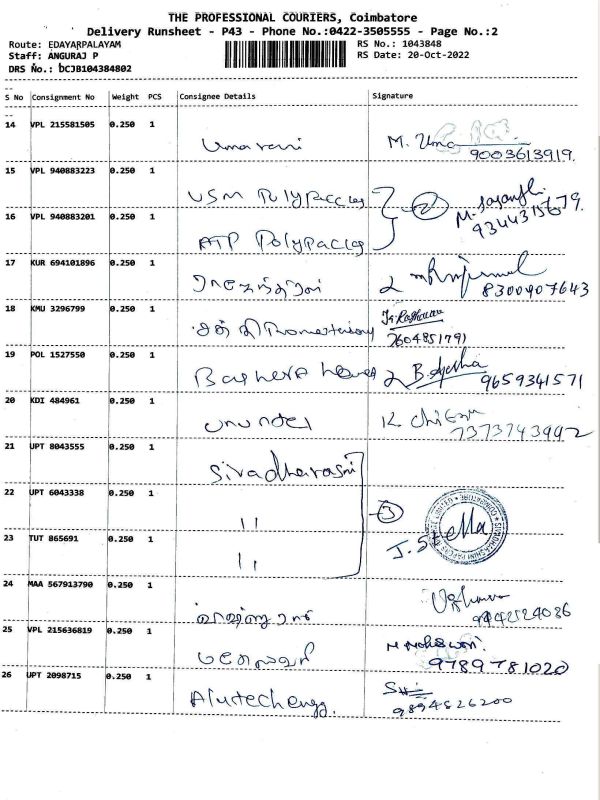 THE PROFESSIONAL COURIERS, Coimbatore
Delivery Runsheet - P43 - Phone No.:0422-3505555 - Page No.:2
Route: EDAYARPALAYAM
RS No.: 1043848
Staff: ANGURAJ P
RS Date: 20-Oct-2022
DRS No.: DCJB104384802
S No Consignment No Weight PCS Consignee Details Signature
14 VPL 215581505 0.250 1 Umarani M. Uma
9003613919
15 VPL 940883223 0.250 1 USM Polypacks
9344315679
16 VPL 940883201 0.250 1 ATP Polypacks
17 KUR 694101896 0.250 1
8300907643
18 KMU 3296799 0.250 1
7604851791
19 POL 1527550 0.250 1 B. Ayesha
9659341571
20 KDI 484961 0.250 1
7373743992
21 UPT 8043555 0.250 1 Sivadharasni
22 UPT 6043338 0.250 1 "
3
J. Stella
23 TUT 865691 0.250 1 "
24 MAA 567913790 0.250 1
25 VPL 215636819 0.250 1
9789781020
26 UPT 2098715 0.250 1 Alutech engg.
9894526200